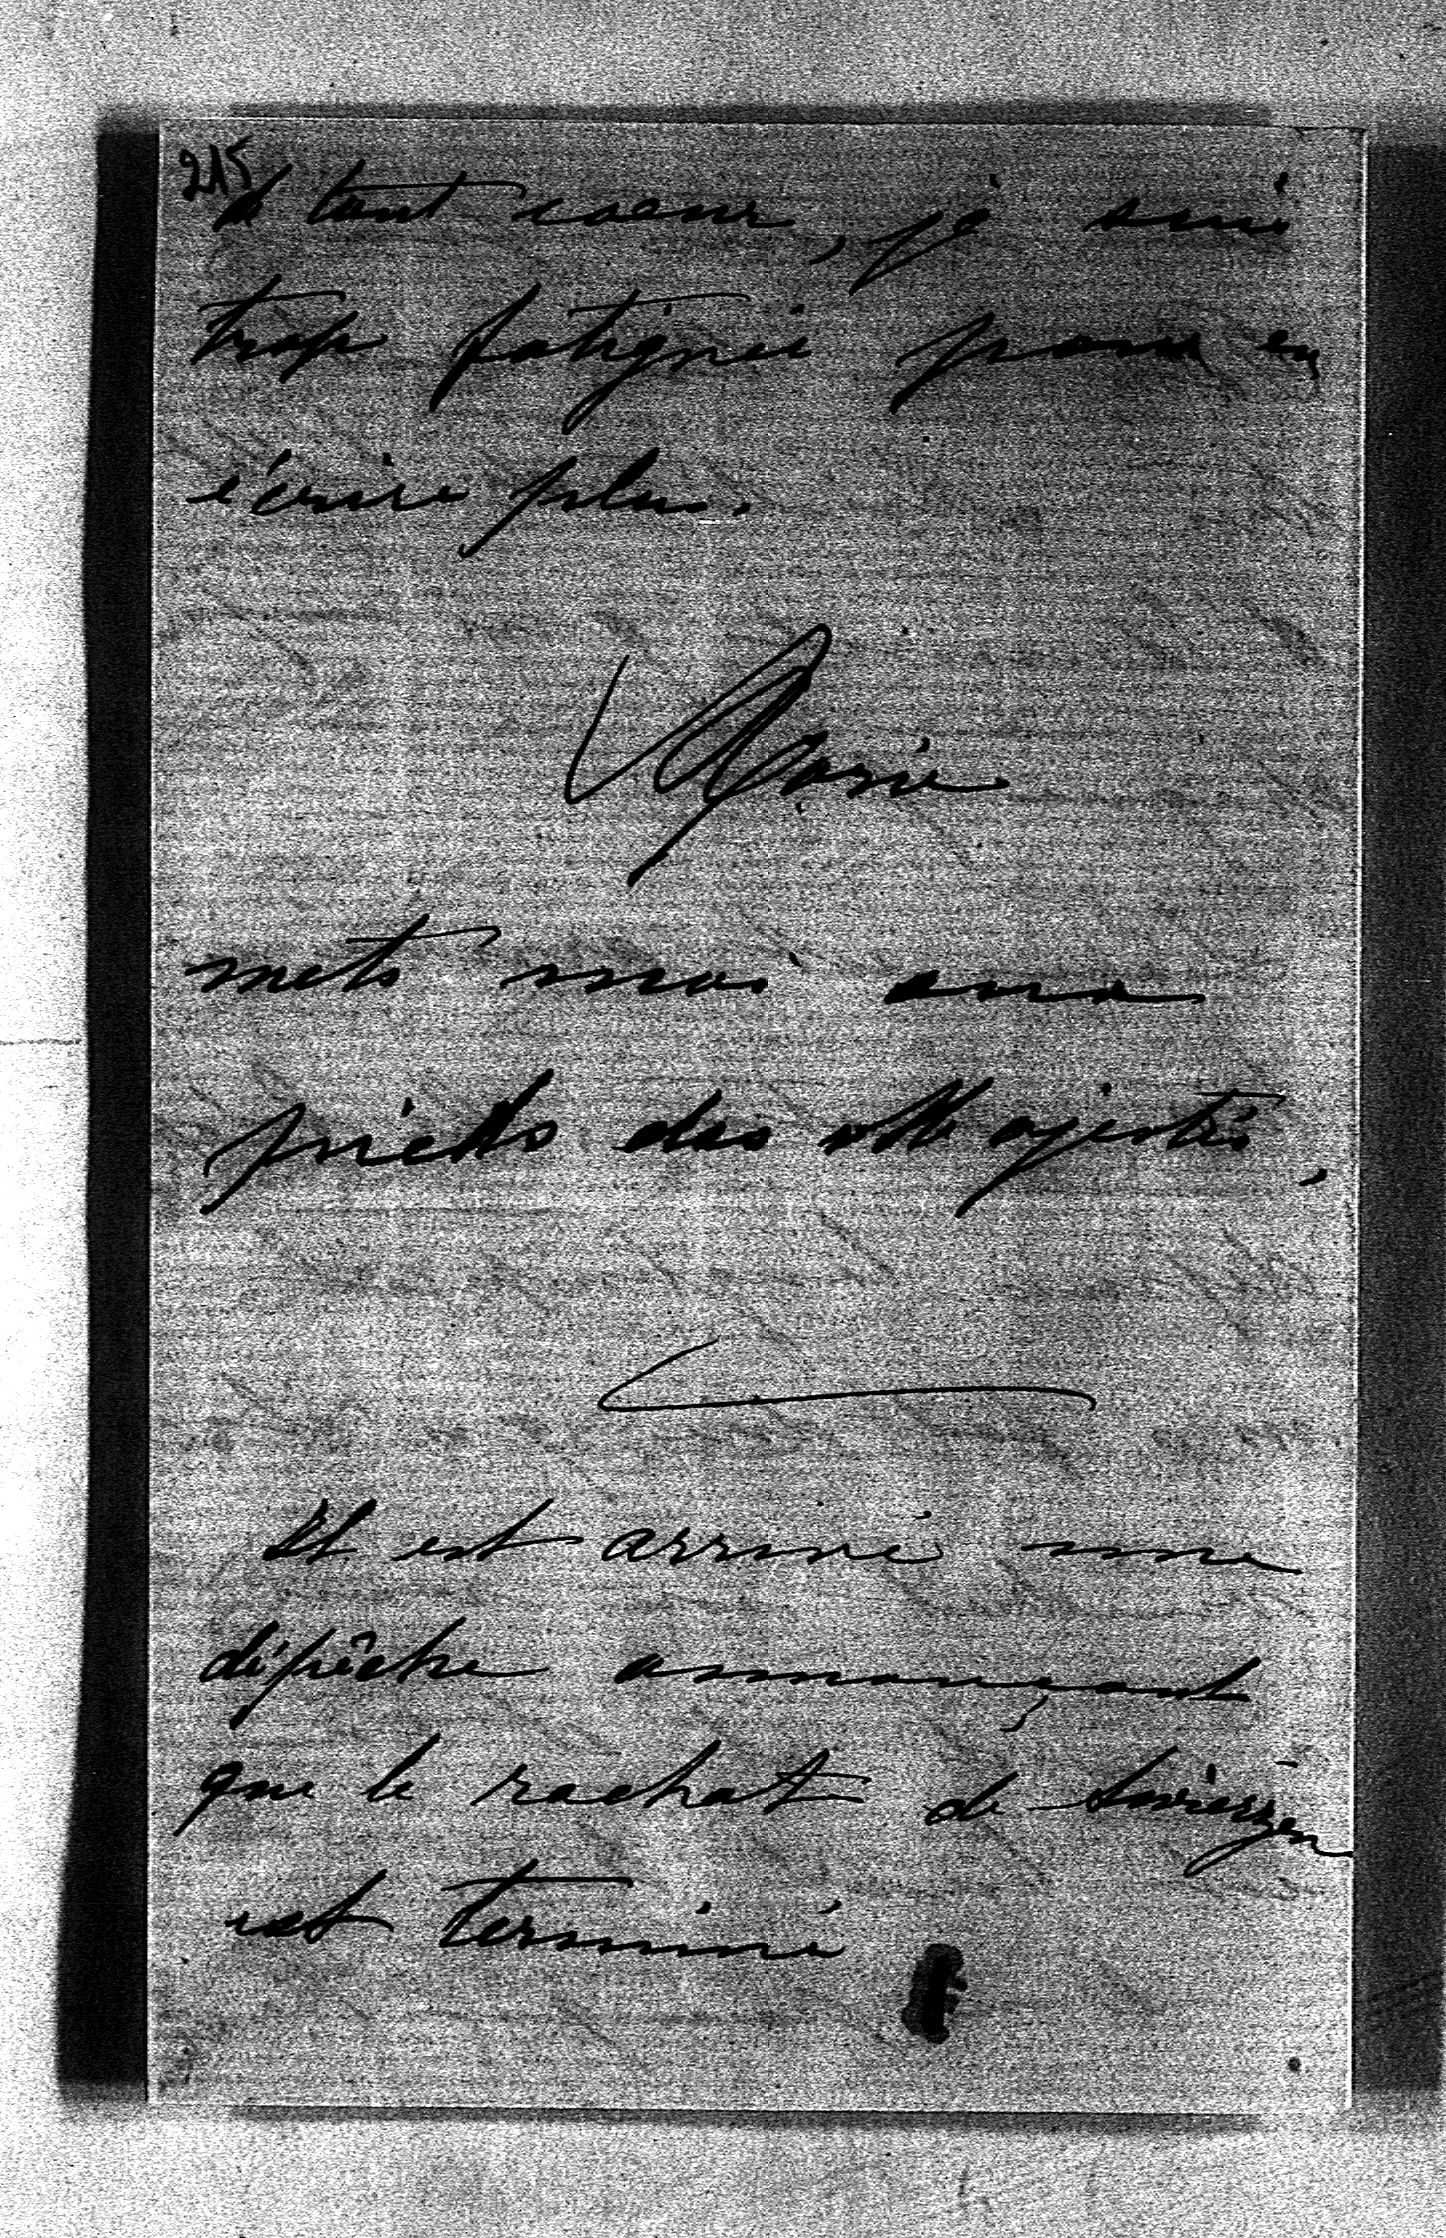 215
d tout coeur, je suis
trop fatiguée pour en
écrire plus.
Marie
mets moi aux
pieds des Majestés.
Il est arrivé une
dépêche annonçant
que le rachat de
est terminé